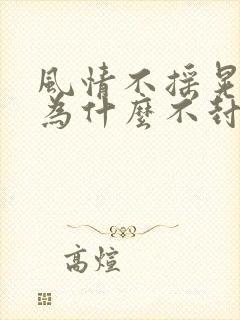 風情不搖晃
為什麼不封
高煊